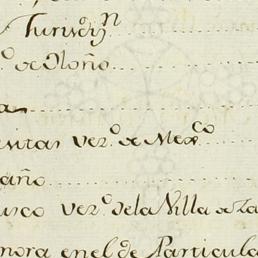 Jurisd.ⁿ
.º de Oloño
as
esitas ver.º de Mex.co
año
usco ver.º de la Villa de Za
nora en el de Particula